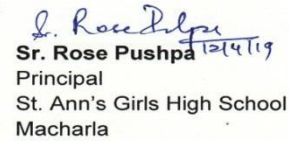 Sr. Rose Pushpa
12/4/19
Sr. Rose Pushpa
Principal
St. Ann's Girls High School
Macharla